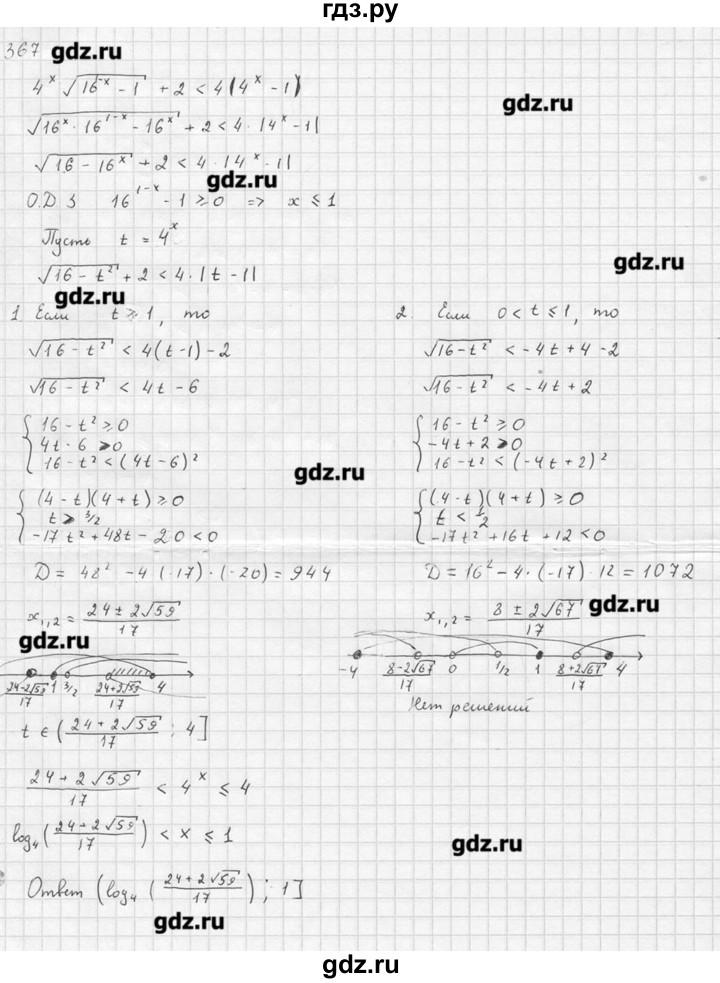 гдз.ру
367 gdz.ru
4^x √(16^-x - 1) + 2 < 4|4^x - 1|
gdz.ru
√(16^x · 16^(1-x) - 16^x) + 2 < 4 · |4^x - 1|
√(16 - 16^x) + 2 < 4 · |4^x - 1|
gdz.ru
О.Д З 16^(1-x) - 1 ≥ 0 => x ≤ 1
Пусть t = 4^x
gdz.ru
√(16 - t²) + 2 < 4 · |t - 1|
gdz.ru
1 Если t ≥ 1, то
√(16 - t²) < 4(t-1) - 2
√(16 - t²) < 4t - 6
{ 16 - t² ≥ 0
4t - 6 > 0
16 - t² < (4t - 6)²
gdz.ru
{ (4 - t)(4 + t) ≥ 0
t > 3/2
-17t² + 48t - 20 < 0
D = 48² - 4(-17) · (-20) = 944
x₁,₂ = (24 ± 2√59)/17
gdz.ru
(24-2√59)/17 1 3/2 (24+2√59)/17 4
t ∈ ((24 + 2√59)/17 ; 4]
(24 + 2√59)/17 < 4^x ≤ 4
log₄((24 + 2√59)/17) < x ≤ 1
Ответ (log₄((24+2√59)/17); 1]
2. Если 0 < t ≤ 1, то
√(16-t²) < -4t + 4 - 2
√(16-t²) < -4t + 2
{ 16 - t² ≥ 0
-4t + 2 > 0
16 - t² < (-4t + 2)²
{ (4-t)(4+t) ≥ 0
t < 1/2
-17t² + 16t + 12 < 0
D = 16² - 4 · (-17) · 12 = 1072
x₁,₂ = (8 ± 2√67)/17
gdz.ru
-4 (8-2√67)/17 0 1/2 1 (8+2√67)/17 4
Нет решений
gdz.ru
gdz.ru
gdz.ru